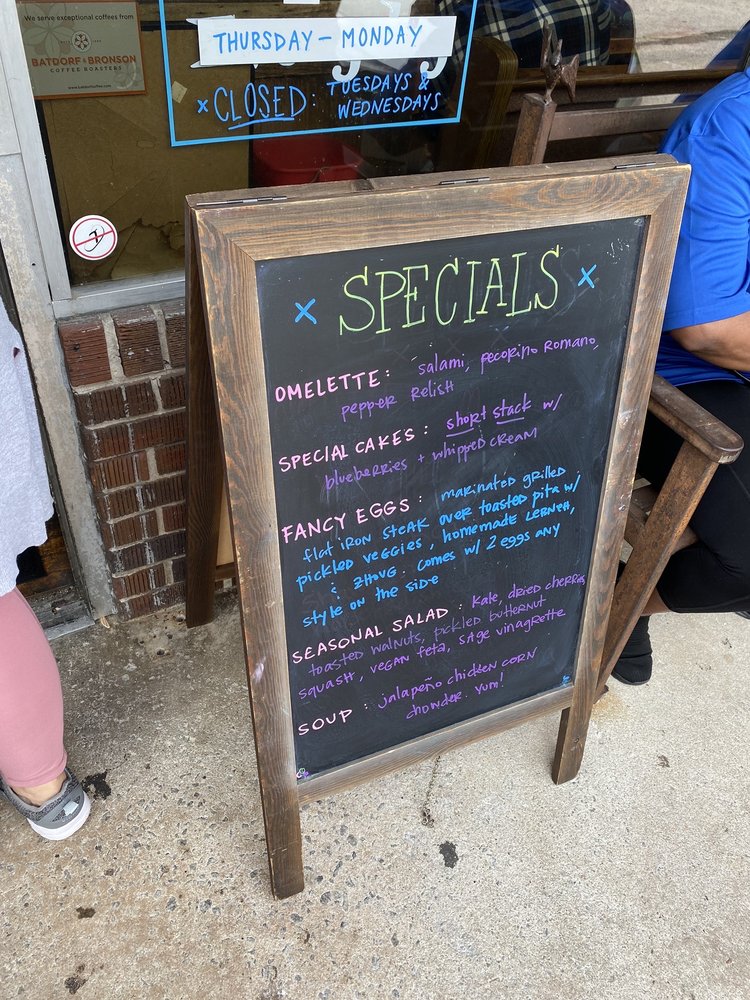 We serve exceptional coffees from
BATDORF & BRONSON
COFFEE ROASTERS
www.batdorfcoffee.com
THURSDAY - MONDAY
x CLOSED: TUESDAYS &
WEDNESDAYS
x SPECIALS x
OMELETTE: salami, pecorino Romano,
pepper relish
SPECIAL CAKES: short stack w/
blueberries + whipped cream
FANCY EGGS: marinated grilled
flat iron steak over toasted pita w/
pickled veggies, homemade lebneh,
& zhoug. comes w/ 2 eggs any
style on the side
SEASONAL SALAD: kale, dried cherries,
toasted walnuts, pickled butternut
squash, vegan feta, sage vinagrette
SOUP: jalapeño chicken corn
chowder. yum!